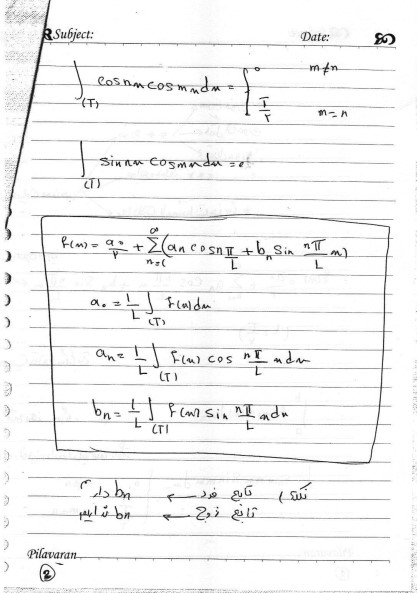 Subject: Date:
∫(T) cosnx cosmx dx = { 0 m≠n
T/۲ m=n
∫(T) sinnx cosmx dx = 0
f(x) = a₀/۲ + Σ(n=1, ∞) (aₙ cos nπ/L + bₙ sin nπ/L x)
a₀ = 1/L ∫(T) f(x)dx
aₙ = 1/L ∫(T) f(x) cos nπ/L x dx
bₙ = 1/L ∫(T) f(x) sin nπ/L x dx
نکته) تابع فرد ← bn داریم
تابع زوج ← bn نداریم
Pilavaran
2